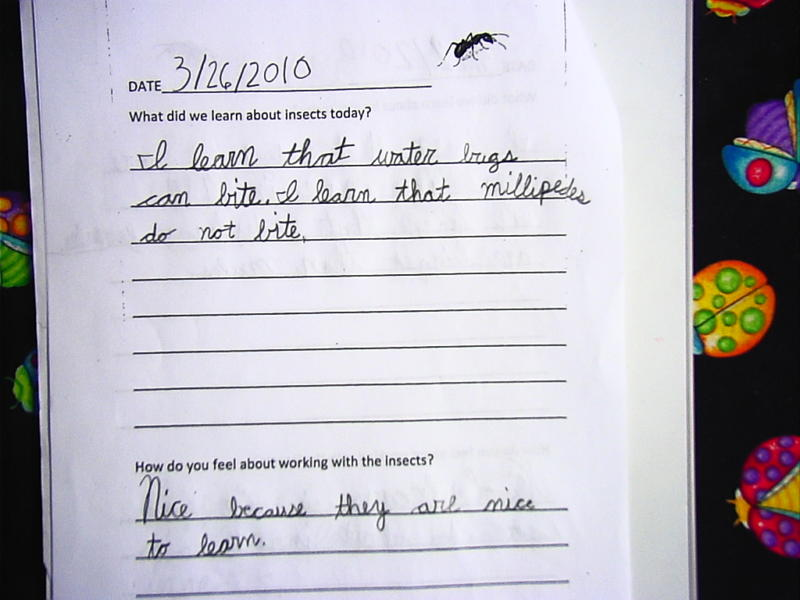 DATE 3/26/2010
What did we learn about insects today?
I learn that water bugs
can bite. I learn that millipedes
do not bite.
How do you feel about working with the insects?
Nice because they are nice
to learn.